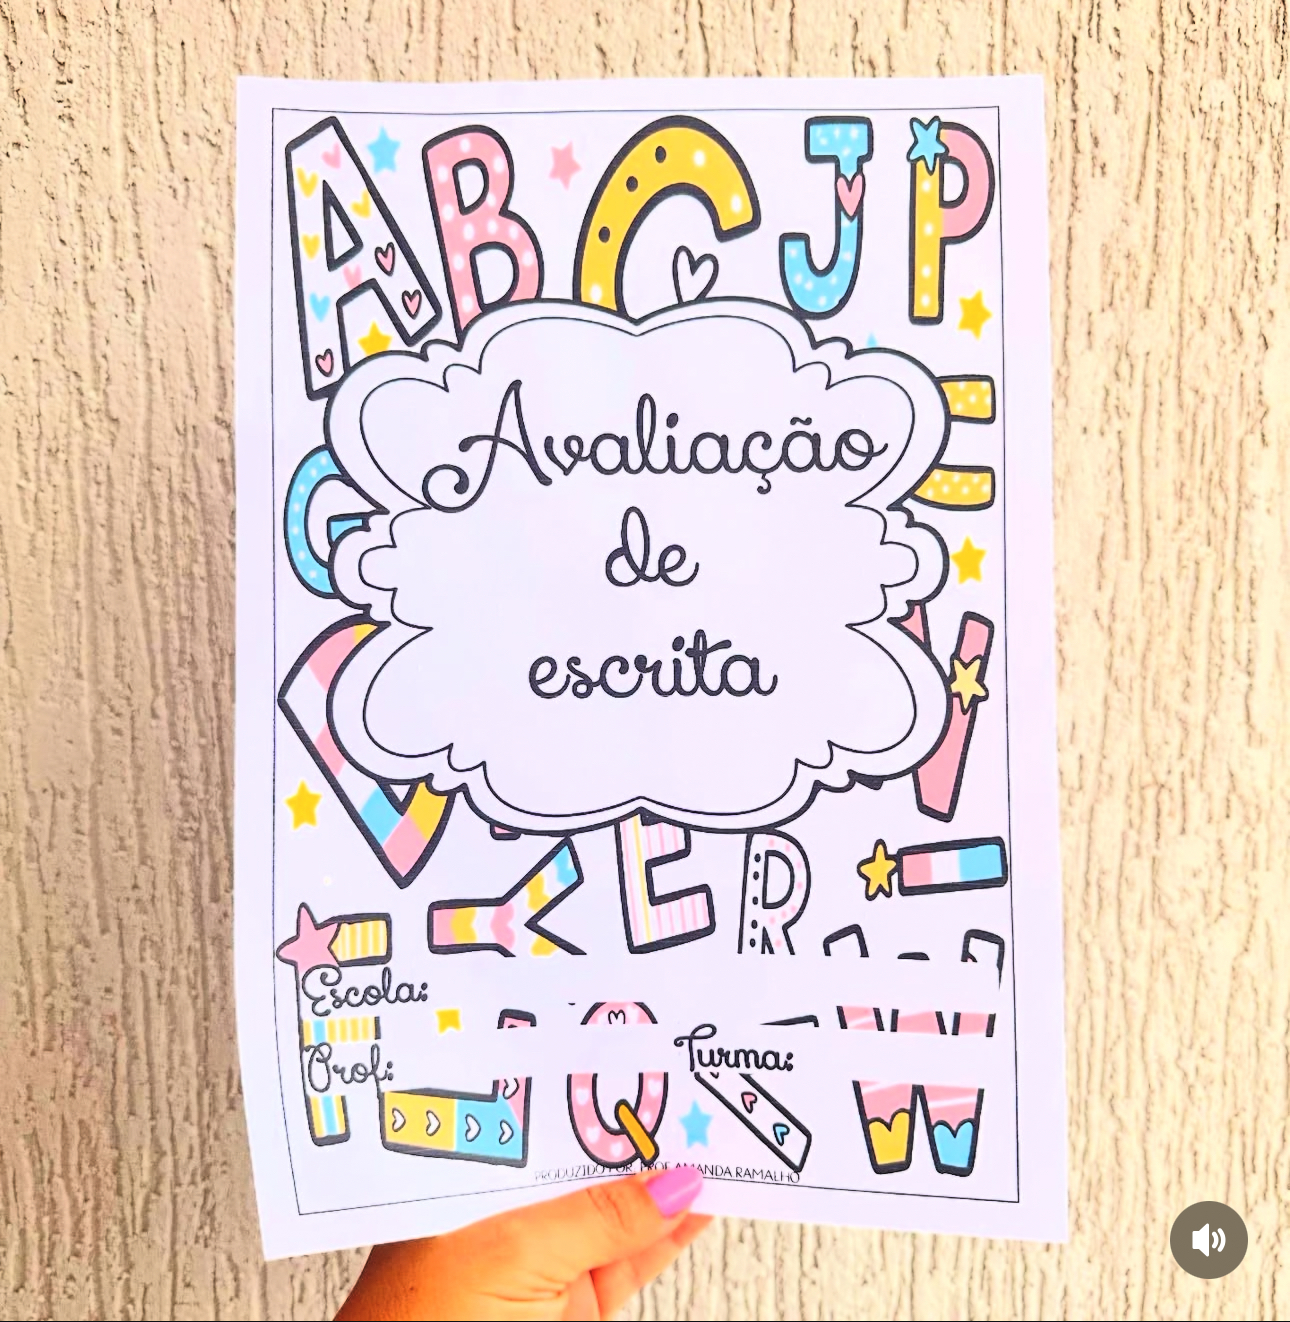 A B C J P
E
G
Avaliação
de
escrita
Y
E R
Escola:
Prof:
Turma:
Q W
PRODUZIDO POR: PROF. AMANDA RAMALHO